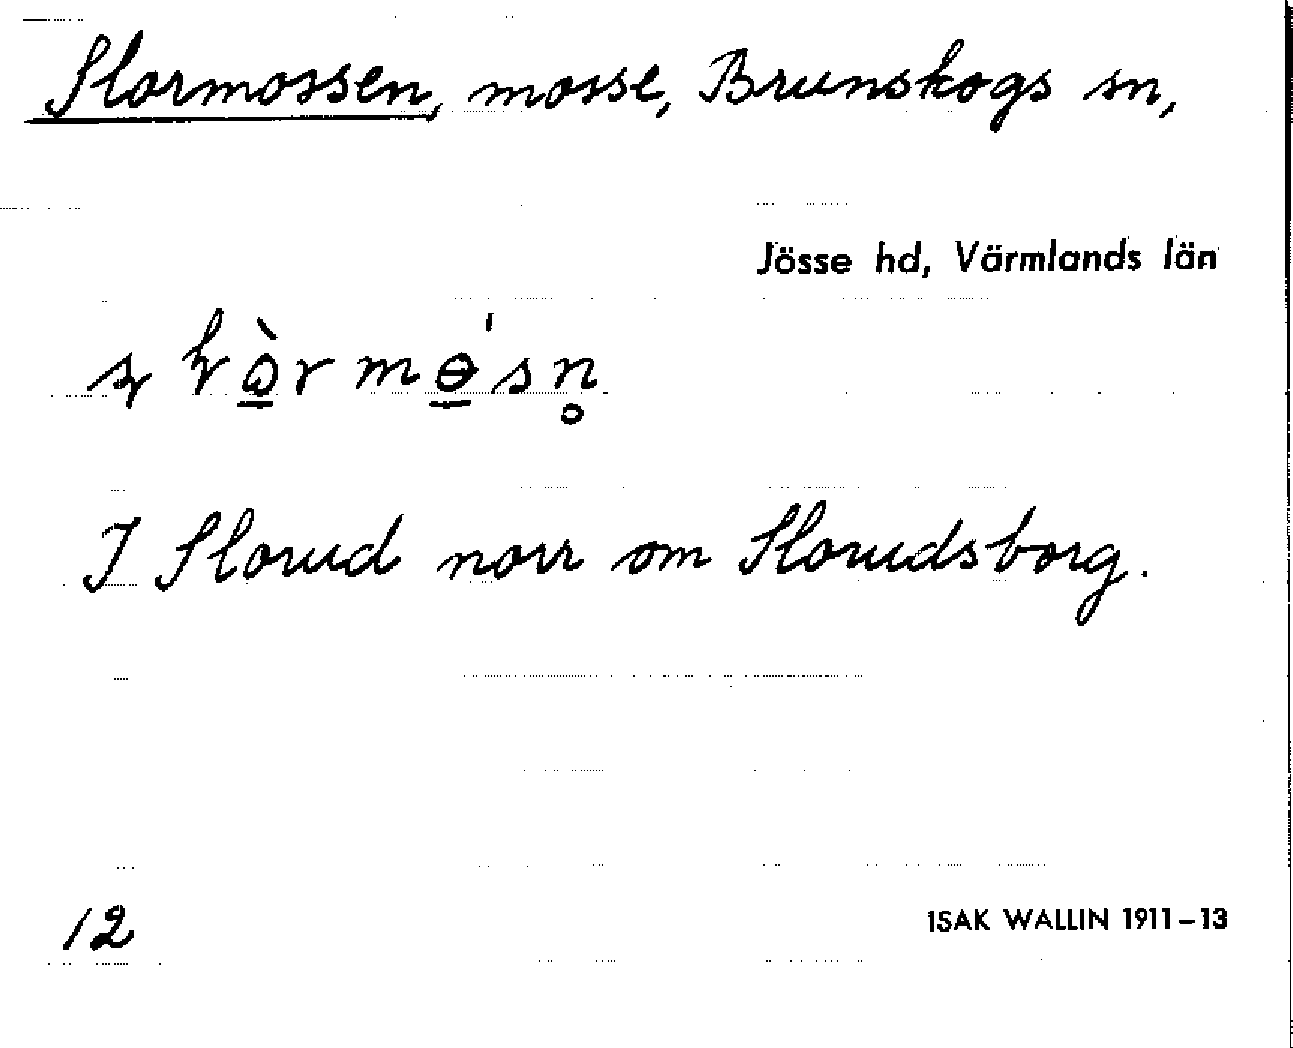 Slormossen, mosse, Brunskogs sn,
Jösse hd, Värmlands län
I Slorud norr om Slorudsborg.
12
ISAK WALLIN 1911–13